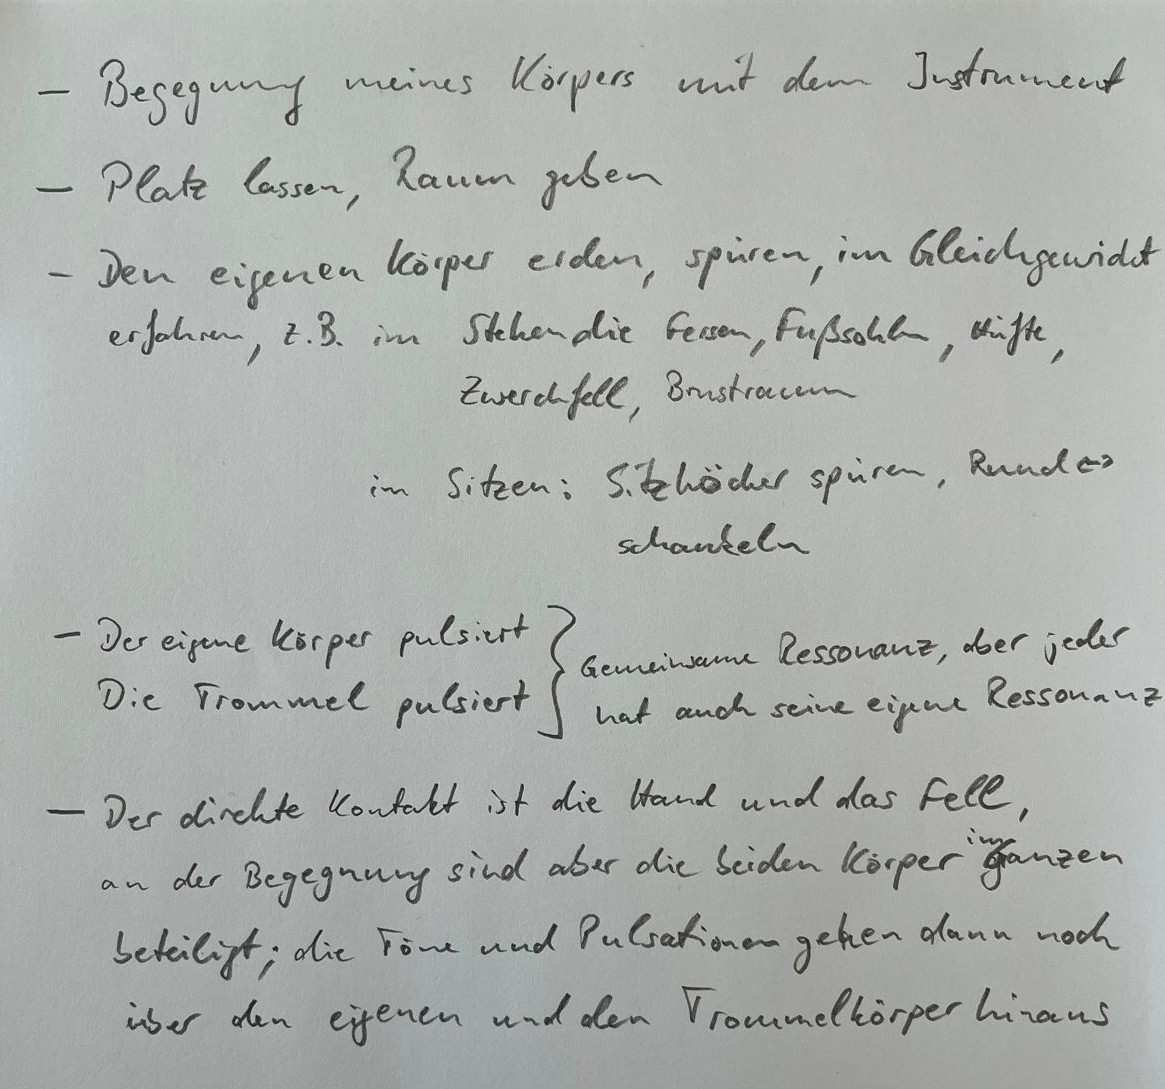 – Begegnung meines Körpers mit dem Instrument
– Platz lassen, Raum geben
– Den eigenen Körper erden, spüren, im Gleichgewicht
erfahren, z.B. im Stehen die Fersen, Fußsohlen, Hüfte,
Zwerchfell, Brustraum
im Sitzen: Sitzhöcker spüren, Rund ↔
schaukeln
– Der eigene Körper pulsiert } Gemeinsame Ressonanz, aber jeder
Die Trommel pulsiert } hat auch seine eigene Ressonanz
– Der direkte Kontakt ist die Hand und das Fell,
an der Begegnung sind aber die beiden Körper im ganzen
beteiligt; die Töne und Pulsationen gehen dann noch
über den eigenen und den Trommelkörper hinaus